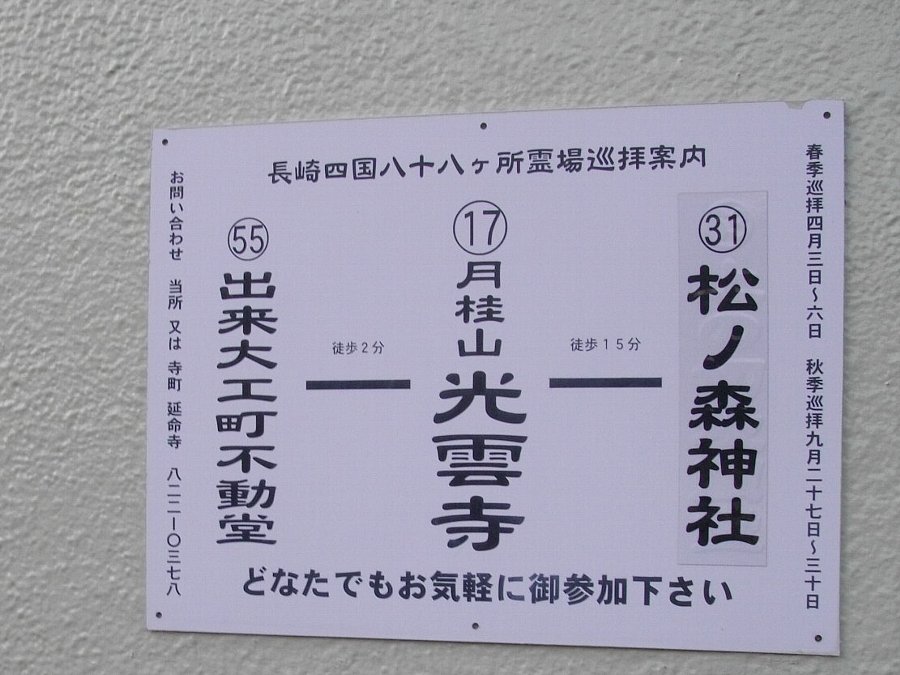 長崎四国八十八ヶ所霊場巡拝案内
春季巡拝四月三日～六日 秋季巡拝九月二十七日～三十日
㉛
松ノ森神社
徒歩15分
⑰
月桂山光雲寺
徒歩2分
55
出来大工町不動堂
お問い合わせ 当所 又は 寺町 延命寺 八二二ー〇三七八
どなたでもお気軽に御参加下さい